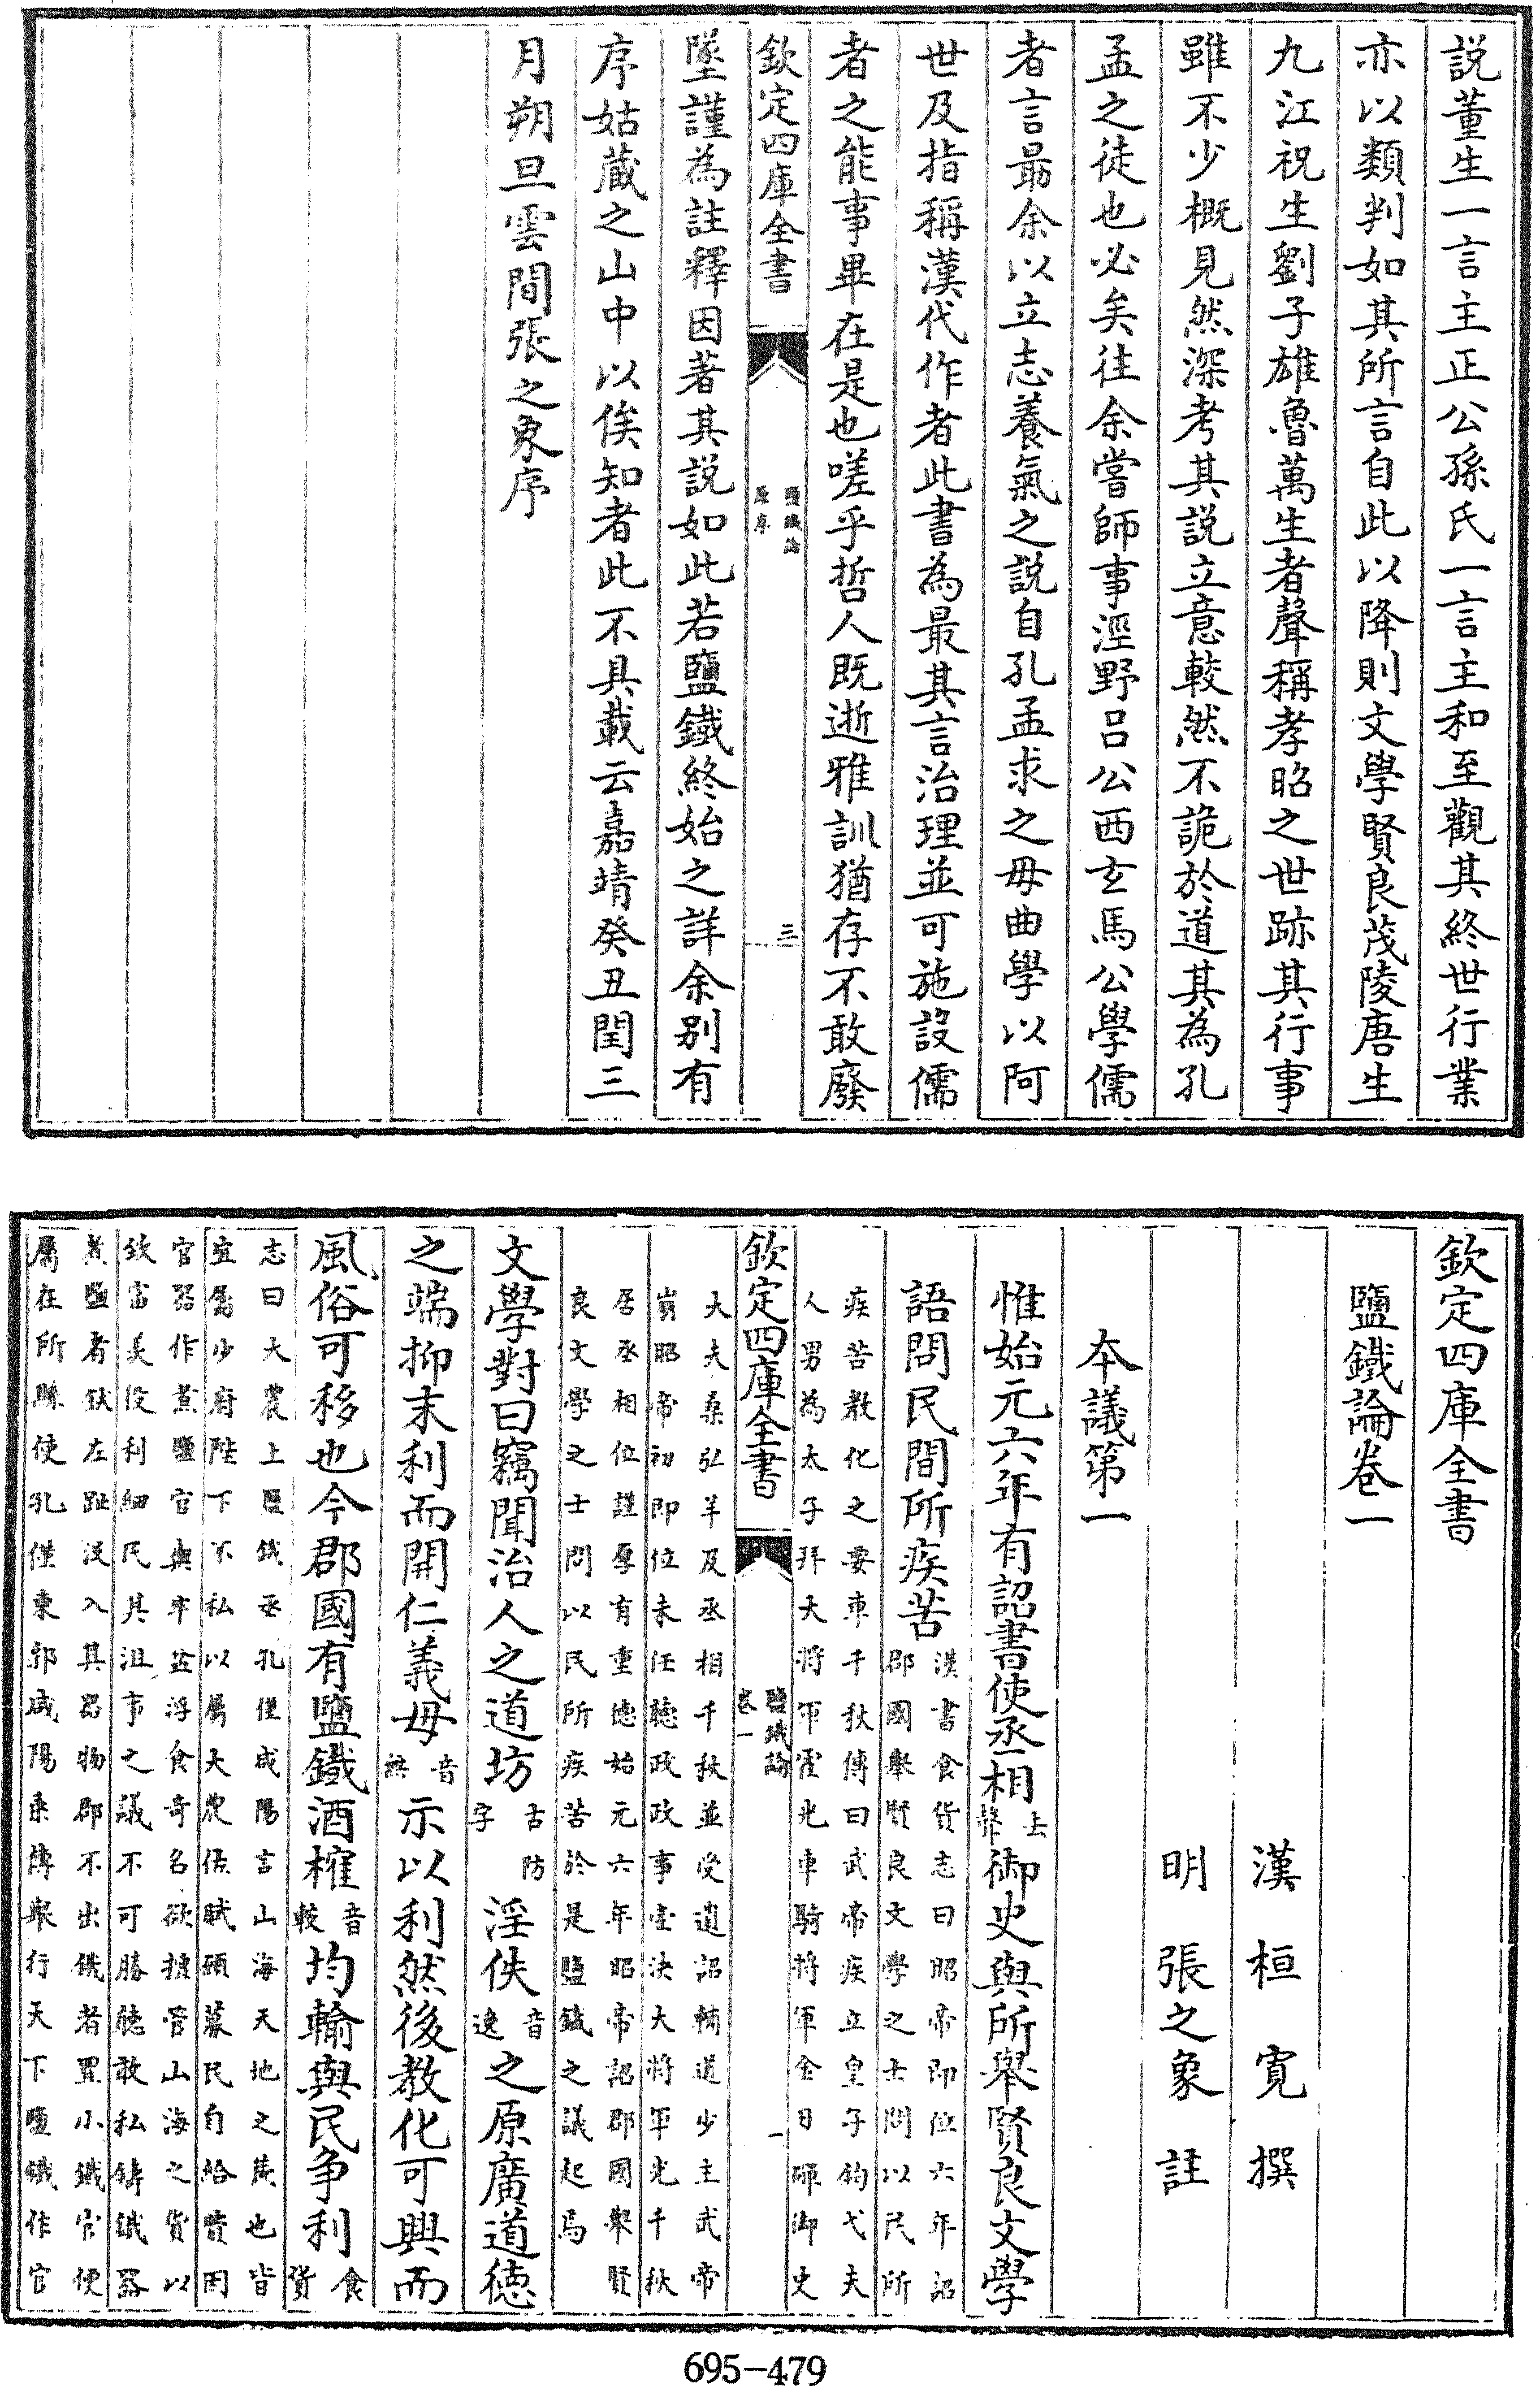 説董生一言主正公孫氏一言主和至觀其終世行業
亦以類判如其所言自此以降則文學賢良茂陵唐生
九江祝生劉子雄魯萬生者聲稱孝昭之世跡其行事
雖不少概見然深考其説立意較然不詭於道其為孔
孟之徒也必矣往余嘗師事涇野呂公西玄馬公學儒
者言最余以立志養氣之説自孔孟求之毋曲學以阿
世及指稱漢代作者此書為最其言治理並可施設儒
者之能事畢在是也嗟乎哲人既逝雅訓猶存不敢廢
欽定四庫全書
鹽鐵論
原序
三
墜謹為註釋因著其説如此若鹽鐵終始之詳余别有
序姑蔵之山中以俟知者此不具載云嘉靖癸丑閏三
月朔旦雲間張之象序
欽定四庫全書
鹽鐵論卷一
漢桓寛撰
明張之象註
本議第一
惟始元六年有詔書使丞相去聲御史與所舉賢良文學
語問民間所疾苦漢書食貨志曰昭帝即位六年詔
郡國舉賢良文學之士問以民所
疾苦教化之要車千秋傳曰武帝疾立皇子鈎弋夫
人男為太子拜大將軍霍光車騎將軍金日磾御史
欽定四庫全書
鹽鐵論
卷一
一
大夫桑弘羊及丞相千秋並受遺詔輔道少主武帝
崩昭帝初即位未任聽政政事壹決大將軍光千秋
居丞相位謹厚有重徳始元六年昭帝詔郡國舉賢
良文學之士問以民所疾苦於是鹽鐵之議起焉
文學對曰竊聞治人之道坊古防字淫佚音逸之原廣道徳
之端抑末利而開仁義毋音無示以利然後教化可興而
風俗可移也今郡國有鹽鐵酒榷音較均輸與民争利食貨
志曰大農上鹽鐵丞孔僅咸陽言山海天地之蔵也皆
宜屬少府陛下不私以屬大農佐賦願募民自給費因
官器作煮鹽官與牢盆浮食奇名欲擅管山海之貨以
致富羡役利細民其沮事之議不可勝聽敢私鑄鐵器
煮鹽者釱左趾沒入其器物郡不出鐵者置小鐵官便
屬在所縣使孔僅東郭咸陽乘傳舉行天下鹽鐵作官
695-479